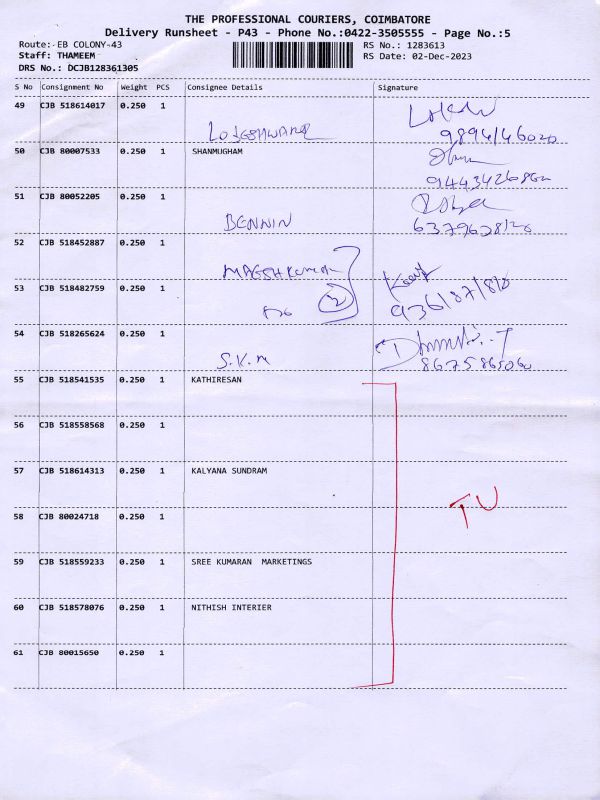 THE PROFESSIONAL COURIERS, COIMBATORE
Delivery Runsheet - P43 - Phone No.:0422-3505555 - Page No.:5
Route: EB COLONY-43 RS No.: 1283613
Staff: THAMEEM RS Date: 02-Dec-2023
DRS No.: DCJB128361305
S No Consignment No Weight PCS Consignee Details Signature
49 CJB 518614017 0.250 1
50 CJB 80007533 0.250 1 SHANMUGHAM
51 CJB 80052205 0.250 1
BENNIN
52 CJB 518452887 0.250 1
53 CJB 518482759 0.250 1
2
54 CJB 518265624 0.250 1
S.K.M
8675865060
55 CJB 518541535 0.250 1 KATHIRESAN
56 CJB 518558568 0.250 1
57 CJB 518614313 0.250 1 KALYANA SUNDRAM
58 CJB 80024718 0.250 1
TU
59 CJB 518559233 0.250 1 SREE KUMARAN MARKETINGS
60 CJB 518578076 0.250 1 NITHISH INTERIER
61 CJB 80015650 0.250 1